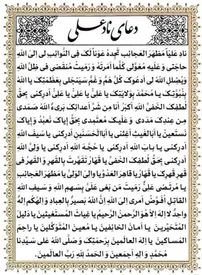 دعای نادعلی
ناد علیاً مظهر العجائب تجده عوناً لک فی النوائب لی الی الله
حاجتی و علیه معولی کلما امرته و رمیت منقضی فی ظل الله
و یضلل الله لی ادعوک کل هم و غم سینجلی بعظمتک یا الله
بنبوتک یا محمد بولایتک یا علی یا علی یا علی ادرکنی بحق
لطفک الخفی الله اکبر انا من شر اعدائک بریء الله صمدی
من عندک مددی و علیک معتمدی بحق ایاک نعبد و ایاک
نستعین یا اباالغیث اغثنی یا اباالحسنین ادرکنی یا سیف الله
ادرکنی یا باب الله ادرکنی یا حجة الله ادرکنی یا ولی الله
ادرکنی بحق لطفک الخفی یا قهار تقهرت بالقهر و القهر فی
قهر قهرک یا قهار یا قاهر العدو یا والی الولی یا مظهر العجائب
یا مرتضی علی رمیت من بغی علی بسهم الله و سیف الله
القاتل افوض امری الی الله ان الله بصیر بالعباد و الهکم اله
واحد لا اله الا هو الرحمن الرحیم یا غیاث المستغیثین یا دلیل
المتحیرین یا امان الخائفین یا معین المتوکلین یا راحم
المساکین یا اله العالمین برحمتک و صلی الله علی سیدنا
محمد و اله اجمعین و الحمد لله رب العالمین.